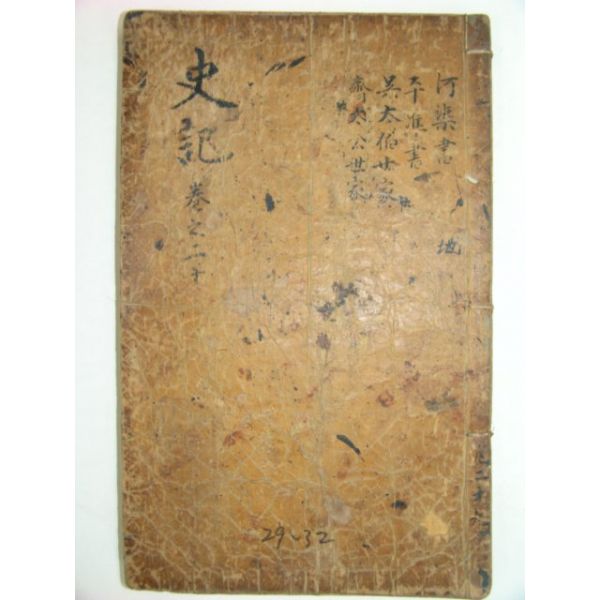 河渠書
平準書
吳太伯世家
齊太公世家
地
史記
卷之二十
29~32